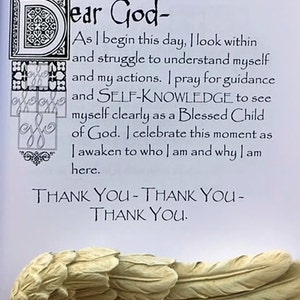 Dear God-
As I begin this day, I look within
and struggle to understand myself
and my actions. I pray for guidance
and SELF-KNOWLEDGE to see
myself clearly as a Blessed Child
of God. I celebrate this moment as
I awaken to who I am and why I am
here.
THANK YOU - THANK YOU -
THANK YOU.